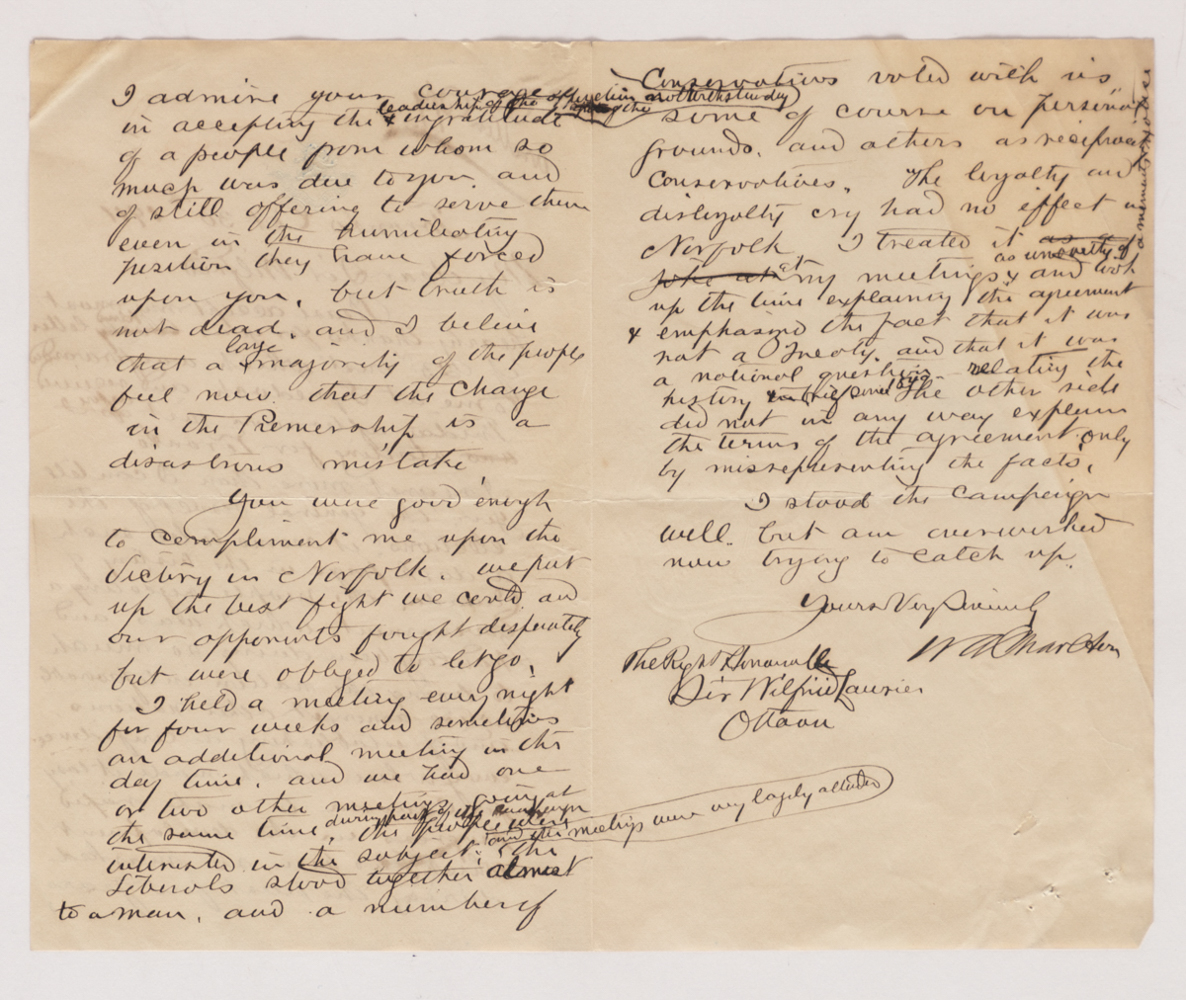 I admire your courage
leadership of the notwithstanding
in accepting the & ingratitude
of a people from whom so
much was due to you, and
of still offering to serve them
even in the humiliating
position they have forced
upon you, but truth is
not dead, and I believe
large
that a majority of the people
feel now that the Change
in the Premiership is a
disastrous mistake
You were good enough
to compliment me upon the
Victory in Norfolk. we put
up the best fight we could and
our opponents fought desperately
but were obliged to let go.
I held a meeting every night
for four weeks and sometimes
an additional meeting in the
day time, and we had one
or two other meetings going at
during part of the campaign
the same time, the people were
interested in the subject; and the meetings were very largely attended
the
Liberals stood together almost
to a man, and a number of
Conservatives voted with us
some of course on personal
grounds, and others as reciprocity
Conservatives. The loyalty and
disloyalty cry had no effect in
Norfolk I treated it
as unworthy of a moments notice
at my meetings & and took
up the time explaining the agreement
& emphasized the fact that it was
not a Treaty, and that it was
a national question. relating the
history The other side
did not in any way explain
the terms of the agreement only
by misrepresenting the facts.
I stood the Campaign
well. but am overworked
now trying to catch up.
Yours Very Sincerely
W A Charlton
The Right Honourable
Sir Wilfrid Laurier
Ottawa